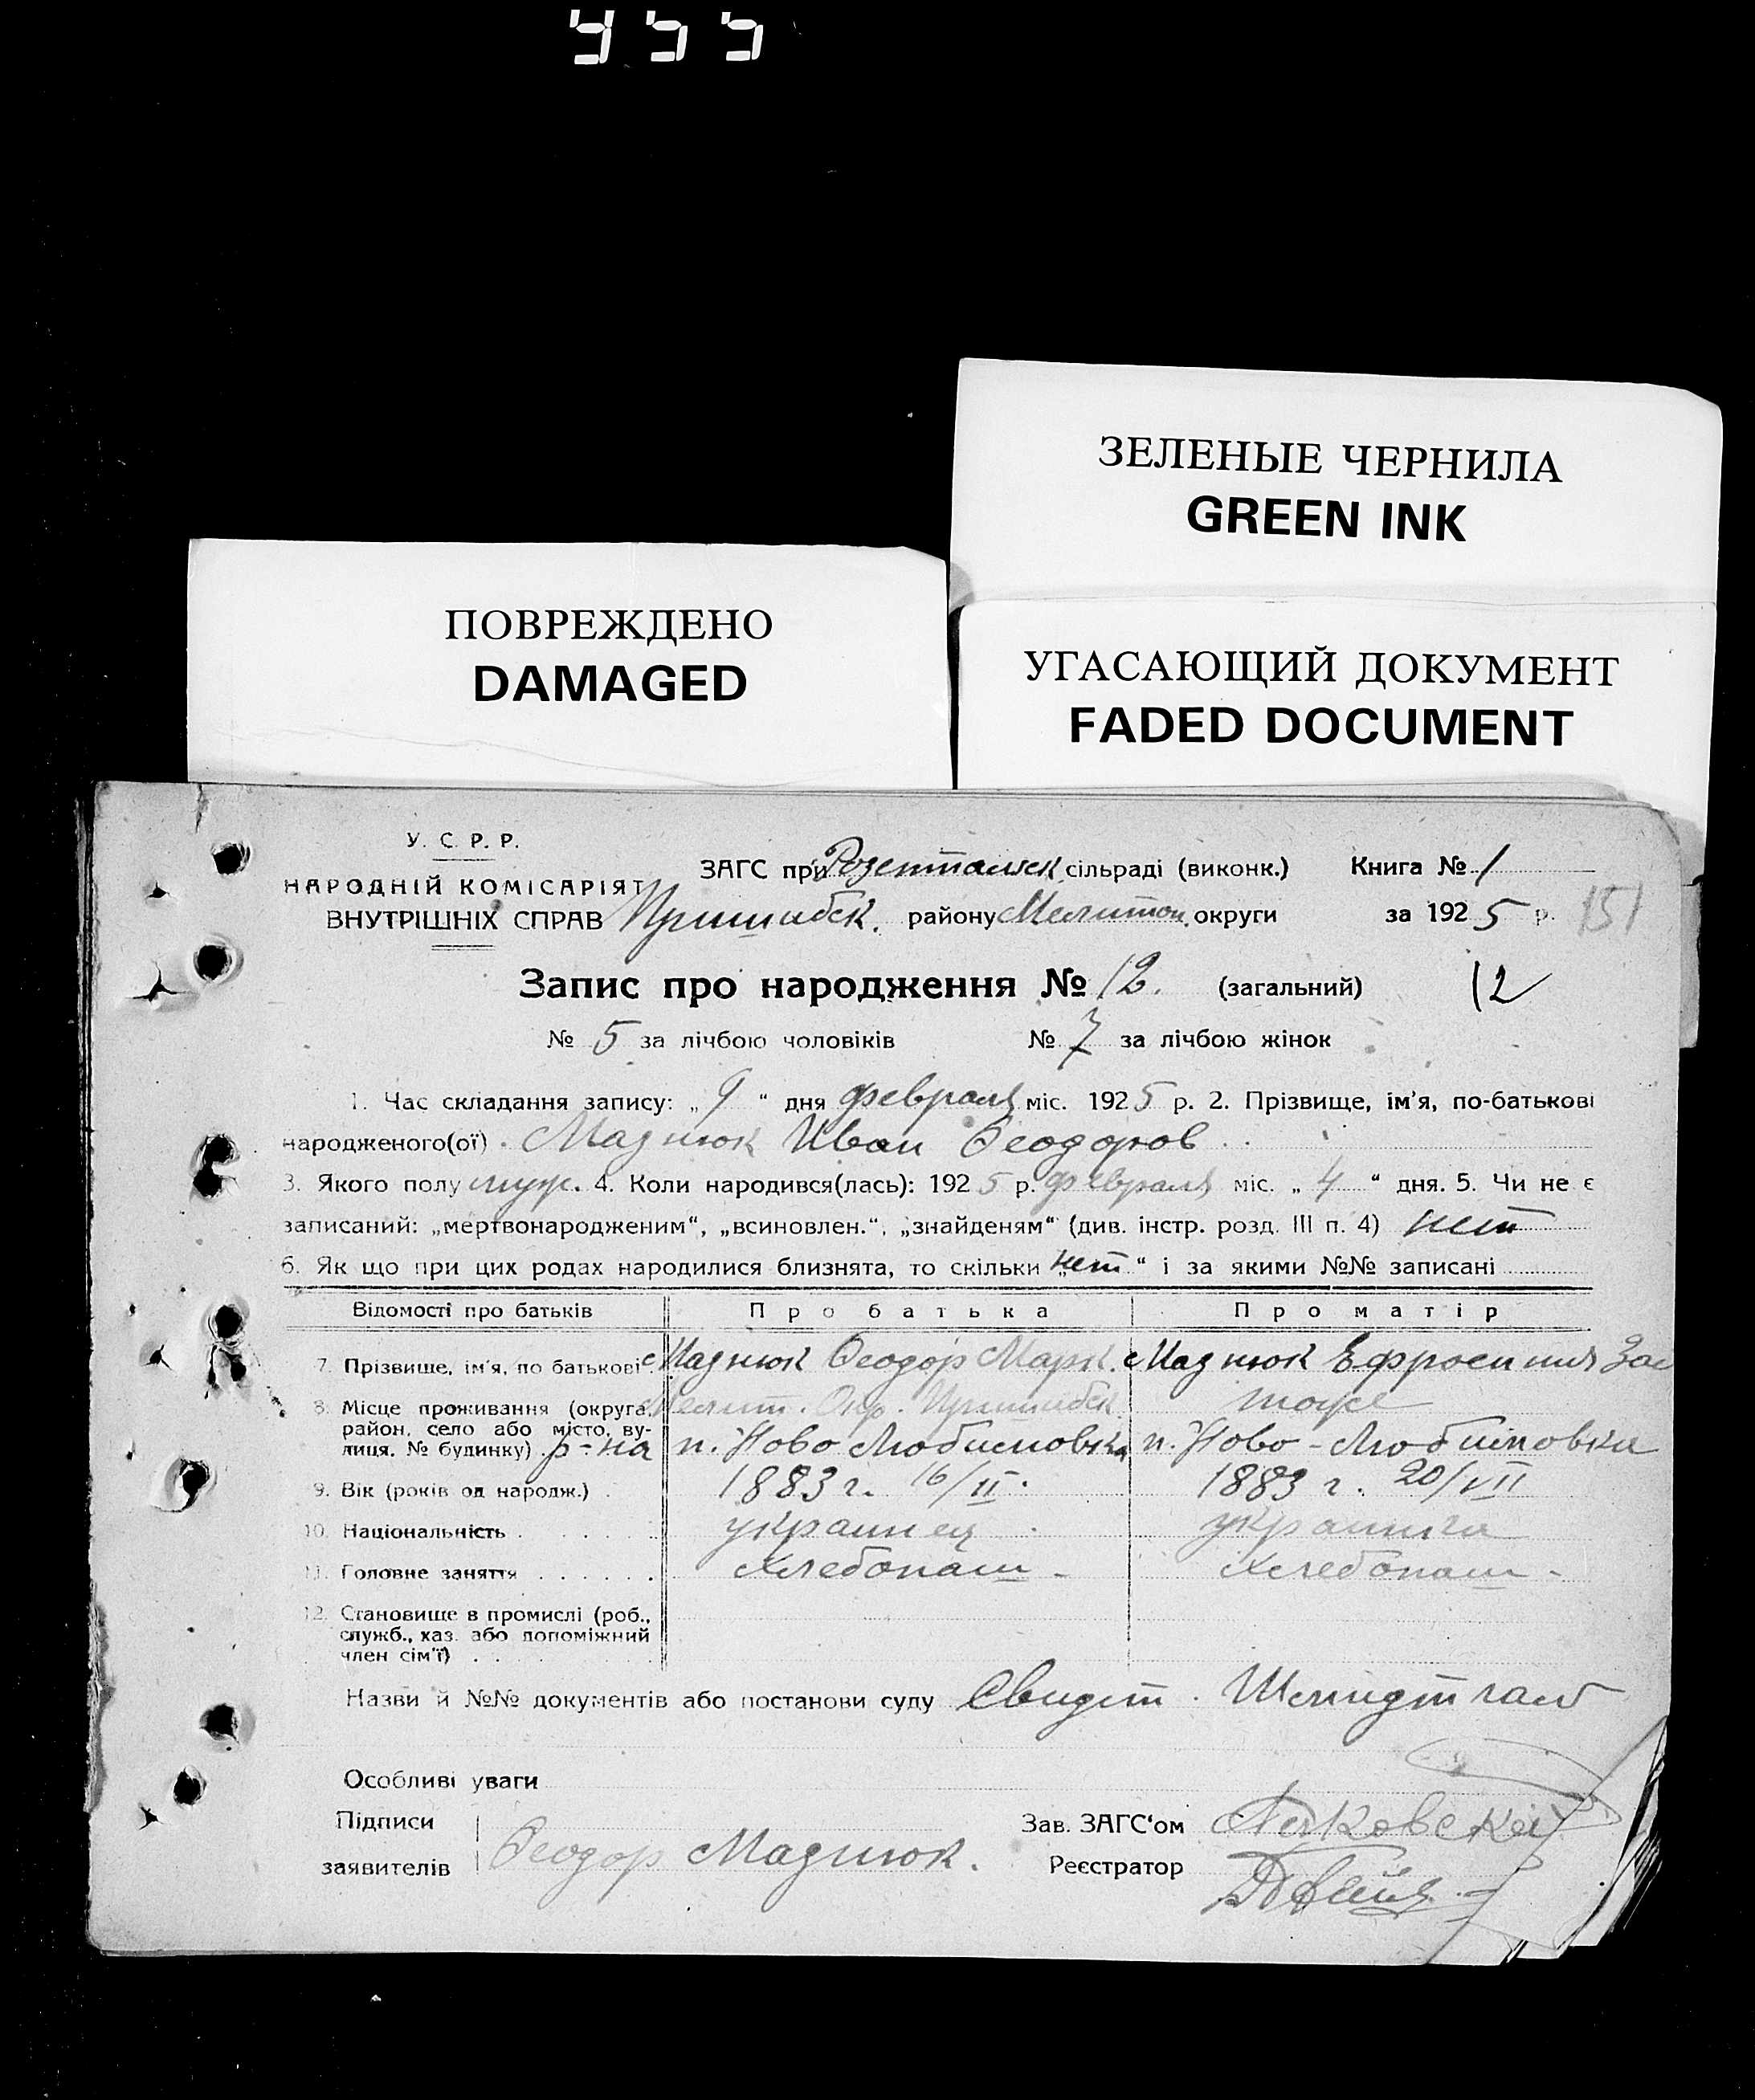 955
ЗЕЛЕНЫЕ ЧЕРНИЛА
GREEN INK
ПОВРЕЖДЕНО
DAMAGED
УГАСАЮЩИЙ ДОКУМЕНТ
FADED DOCUMENT
У. С. Р. Р.
НАРОДНІЙ КОМІСАРІЯТ
ВНУТРІШНІХ СПРАВ
ЗАГС при Розентальск. сільраді (виконк.) Книга № 1
Пришибск. району Мелитоп. округи за 1925 р. 151
Запис про народження № 12. (загальний) 12
№ 5 за лічбою чоловіків № 7 за лічбою жінок
1. Час складання запису: „9“ дня февраля міс. 1925 р. 2. Прізвище, ім'я, по-батькові
народженого(ої) Мазнюк Иван Феодоров
3. Якого полу муж. 4. Коли народився(лась): 1925 р. февраля міс. „4“ дня. 5. Чи не є
записаний: „мертвонародженим“, „всиновлен.“, „знайденям“ (див. інстр. розд. III п. 4) нет
6. Як що при цих родах народилися близнята, то скільки „нет“ і за якими №№ записані
Відомості про батьків Про батька Про матір
7. Прізвище, ім'я, по батькові Мазнюк Феодор Марк. Мазнюк Ефросиния Зас
8. Місце проживання (округа, Мелит. Окр. Пришибск. тоже
район, село або місто, ву-
лиця, № будинку) р-на п. Ново Любимовка п. Ново-Любимовка
9. Вік (років од народж.) 1883 г. 16/II. 1883 г. 20/VII
10. Національність украинец украинка
11. Головне заняття Хлебопаш- Хлебопаш-
12. Становище в промислі (роб.,
служб., хаз. або допоміжний
член сім'ї)
Назви й №№ документів або постанови суду Свидет.
Особливі уваги
Підписи Зав. ЗАГС'ом
заявителів Феодор Мазнюк. Реєстратор